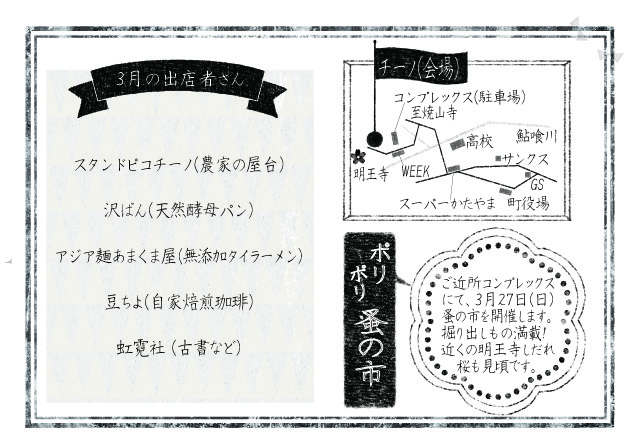 3月の出店者さん
スタンドピコチーノ(農家の屋台)
沢ぱん(天然酵母パン)
アジア麺あまくま屋(無添加タイラーメン)
豆ちよ(自家焙煎珈琲)
虹霓社 (古書など)
チーノ(会場)
コンプレックス(駐車場)
至焼山寺
高校
鮎喰川
サンクス
明王寺
WEEK
GS
スーパーかたやま
町役場
ポリ
ポリ
蚤の市
ご近所コンプレックス
にて、3月27日(日)
蚤の市を開催します。
掘り出しもの満載!
近くの明王寺しだれ
桜も見頃です。